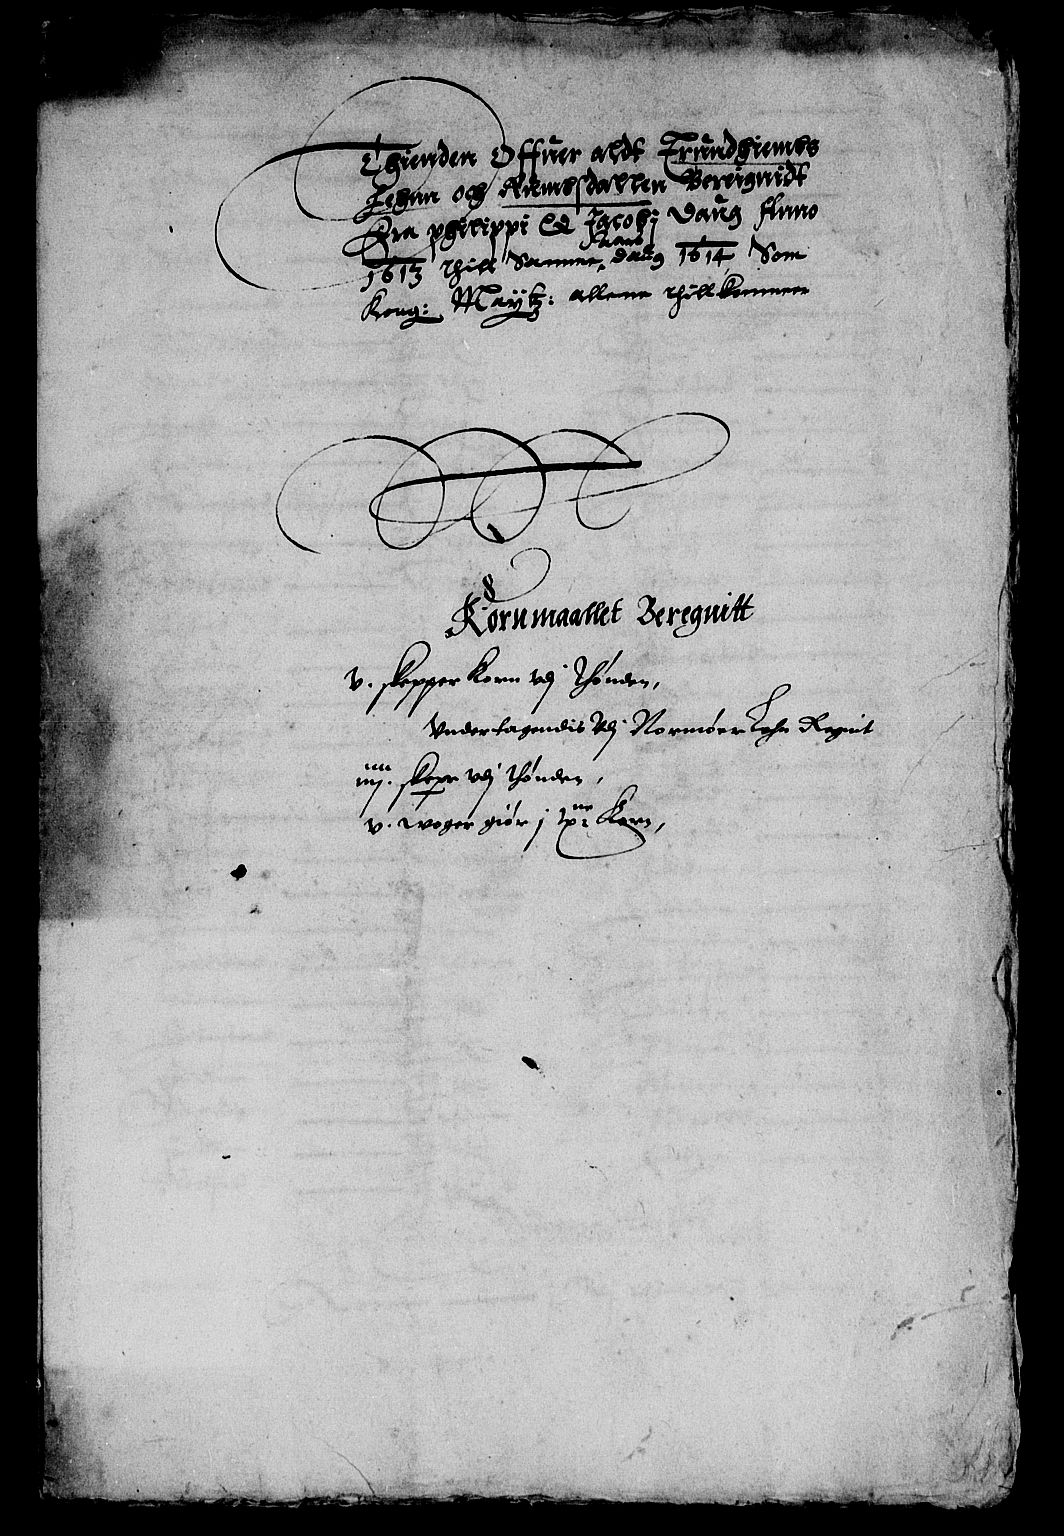 Thienden Offuer aldt Trundhiembs
Lehnn og Rumbsdallen Beregnidt
Fra philippi Et Jacobj daug Anno
1613 thill Samme Aars daug 1614 Som
Kong: Maytz: allene thillkommer
Kornmaallet Beregnitt
v. skepper Korn vdj thønden,
Vndertagendis Vdj Normøer Lehn Regnit
iiij. skepr vdj thønden,
v. woger giør j tpne Korn,